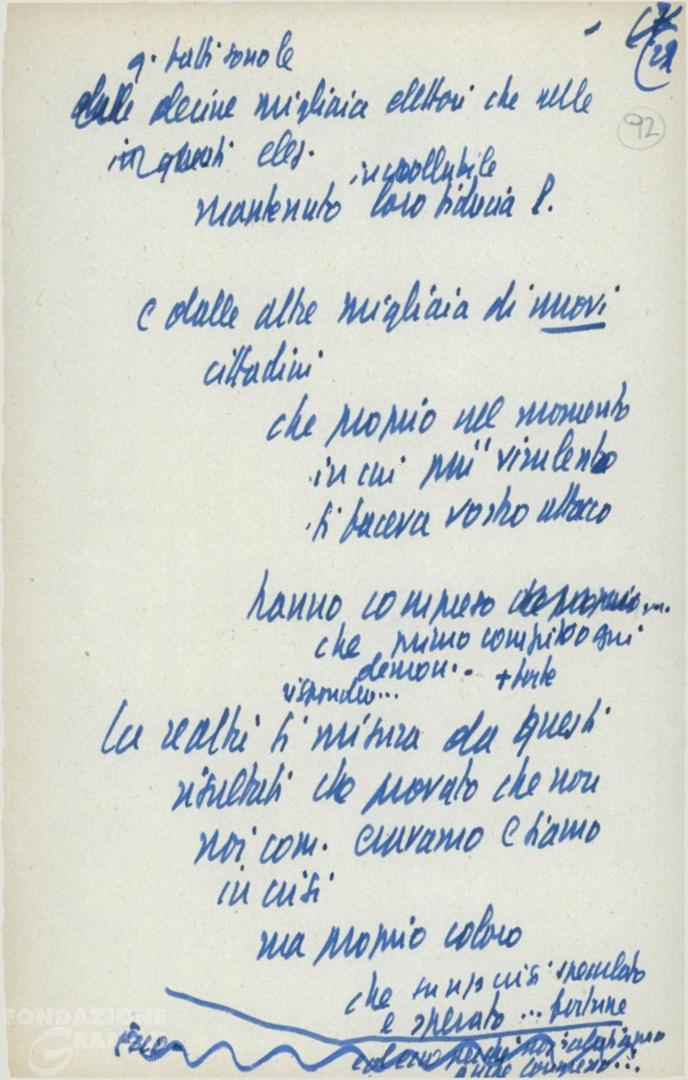 28
92
q. fatti sono le
dalle decine migliaia elettori che nelle
in questi elez.
incrollabile
mantenuto loro fiducia P.
e dalle altre migliaia di nuovi
cittadini
che proprio nel momento
in cui più virulento
si faceva vostro attacco
hanno compreso
che primo compito ogni
democ.. + forte
rispondere...
La realtà si misura da questi
risultati che provato che non
noi com. eravamo e siamo
in crisi
ma proprio coloro
che su ns crisi speculato
e sperato ... fortune
FONDAZIONE
GRAMSCI